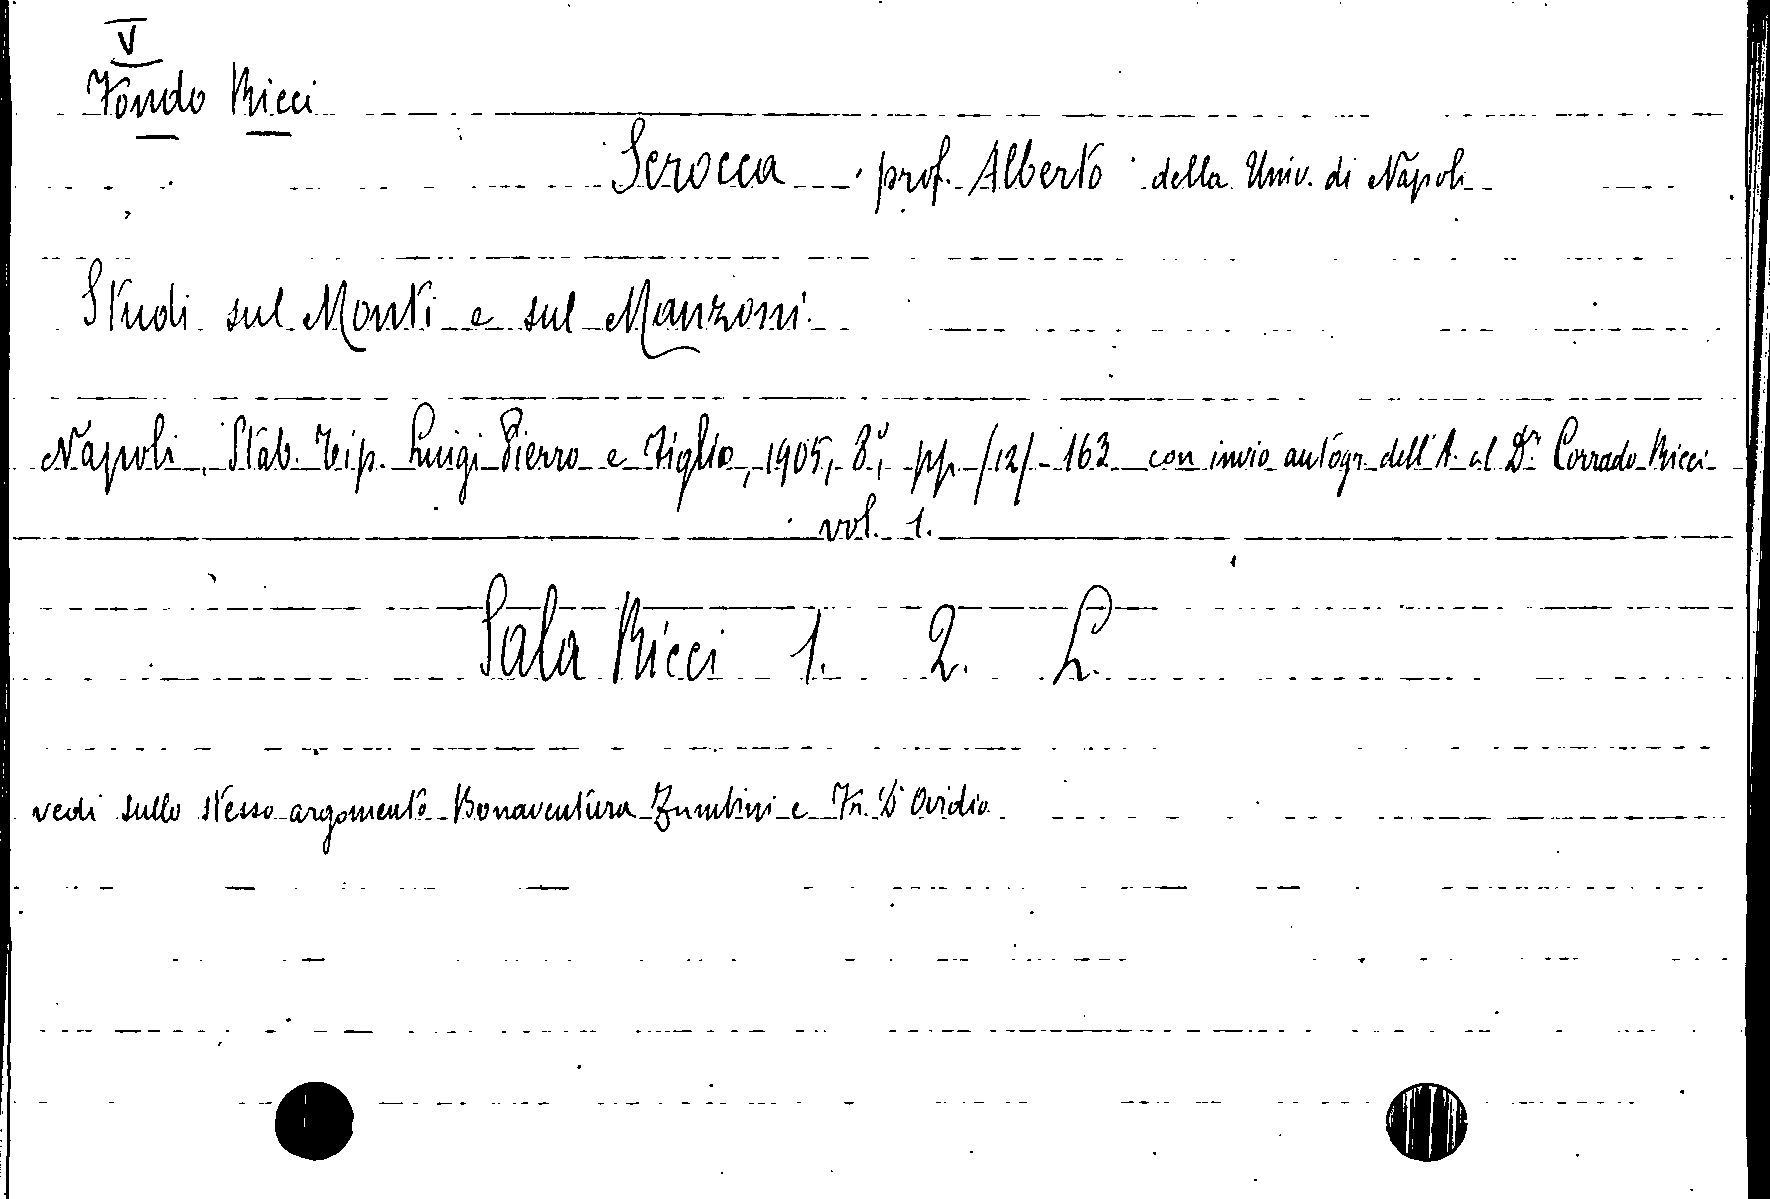 V
Fondo Ricci
Scrocca prof. Alberto della Univ. di Napoli
Studi sul Monti e sul Manzoni.
Napoli, Stab. Tip. Luigi Pierro e Figlio, 1905, 8°, pp. /12/ - 163 con invio autogr. dell'A. al Dr. Corrado Ricci
vol. 1.
Sala Ricci 1. 2. L.
vedi sullo stesso argomento Bonaventura Zumbini e Fr. D'Ovidio